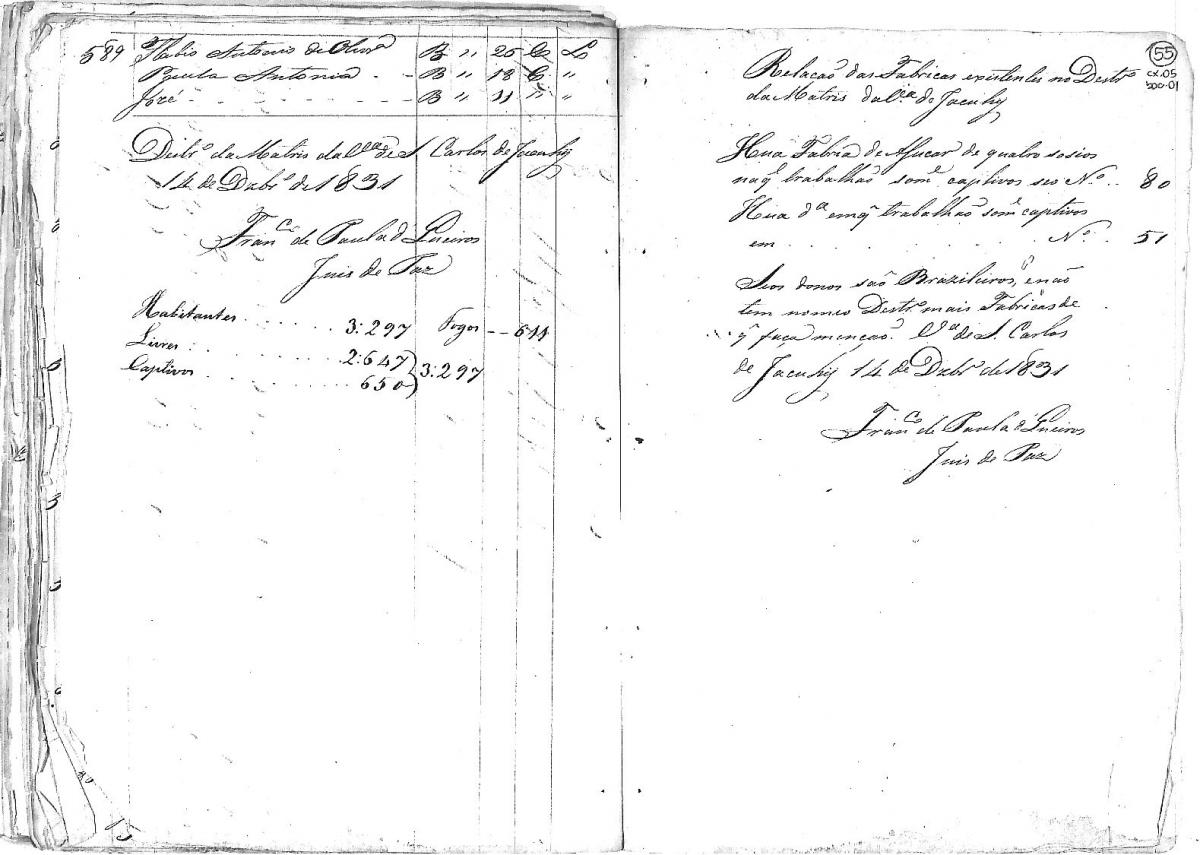 589 Flabio Antonio de Olivrª B " 26 C Lo
Paula Antonia . - B " 18 C "
Jozé - - - - - - - - B " 11 " "
Distrº da Matris da Vª de S. Carlos de Jacuhy
14 de Dzbrº de 1831
Francº de Paula
Juis de Paz
Habitantes . . . . . . . . 3:297 Fogos - - 611
Livres . . . . . . . . . 2:647
Captivos . . . . . . . . . 650 } 3:297
155
cx.05
DOC.01
Relação das Fabricas existentes no Destrº
da Matris da Vª de Jacuhy
Hua Fabria de Asucar de quatro sosios
naq̃ trabalhaõ somᵉ captivos seo Nº . . 80
Hua dª emq̃ trabalhaõ somᵉ captivos
em . . . . . . . . . . . . . Nº . 51
Seos donos saõ Brazileiros, enaõ
tem nomeo Destrº mais Fabricas de
q̃ faça mençaõ. Vª de S. Carlos
de Jacuhy 14 de Dzbrº de 1831
Francº de Paula
Juis de Paz
15